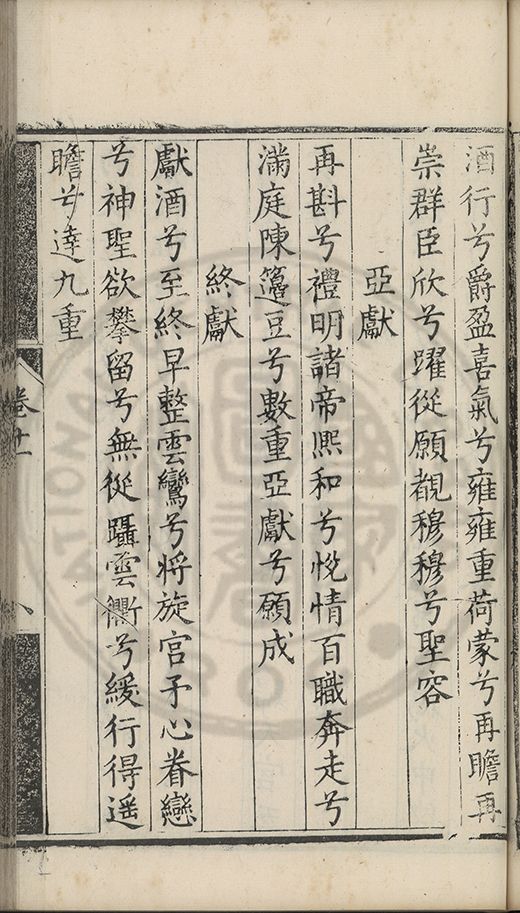 酒行兮爵盈喜氣兮雍雍重荷蒙兮再瞻再
崇群臣欣兮躍從願覩穆穆兮聖容
亞獻
再斟兮禮明諸帝熈和兮悅情百職奔走兮
滿庭陳籩豆兮數重亞獻兮願成
終獻
獻酒兮至終早整雲鸞兮將旋宮予心眷戀
兮神聖欲攀留兮無從躡雲衢兮緩行得遥
瞻兮達九重
卷十一
八